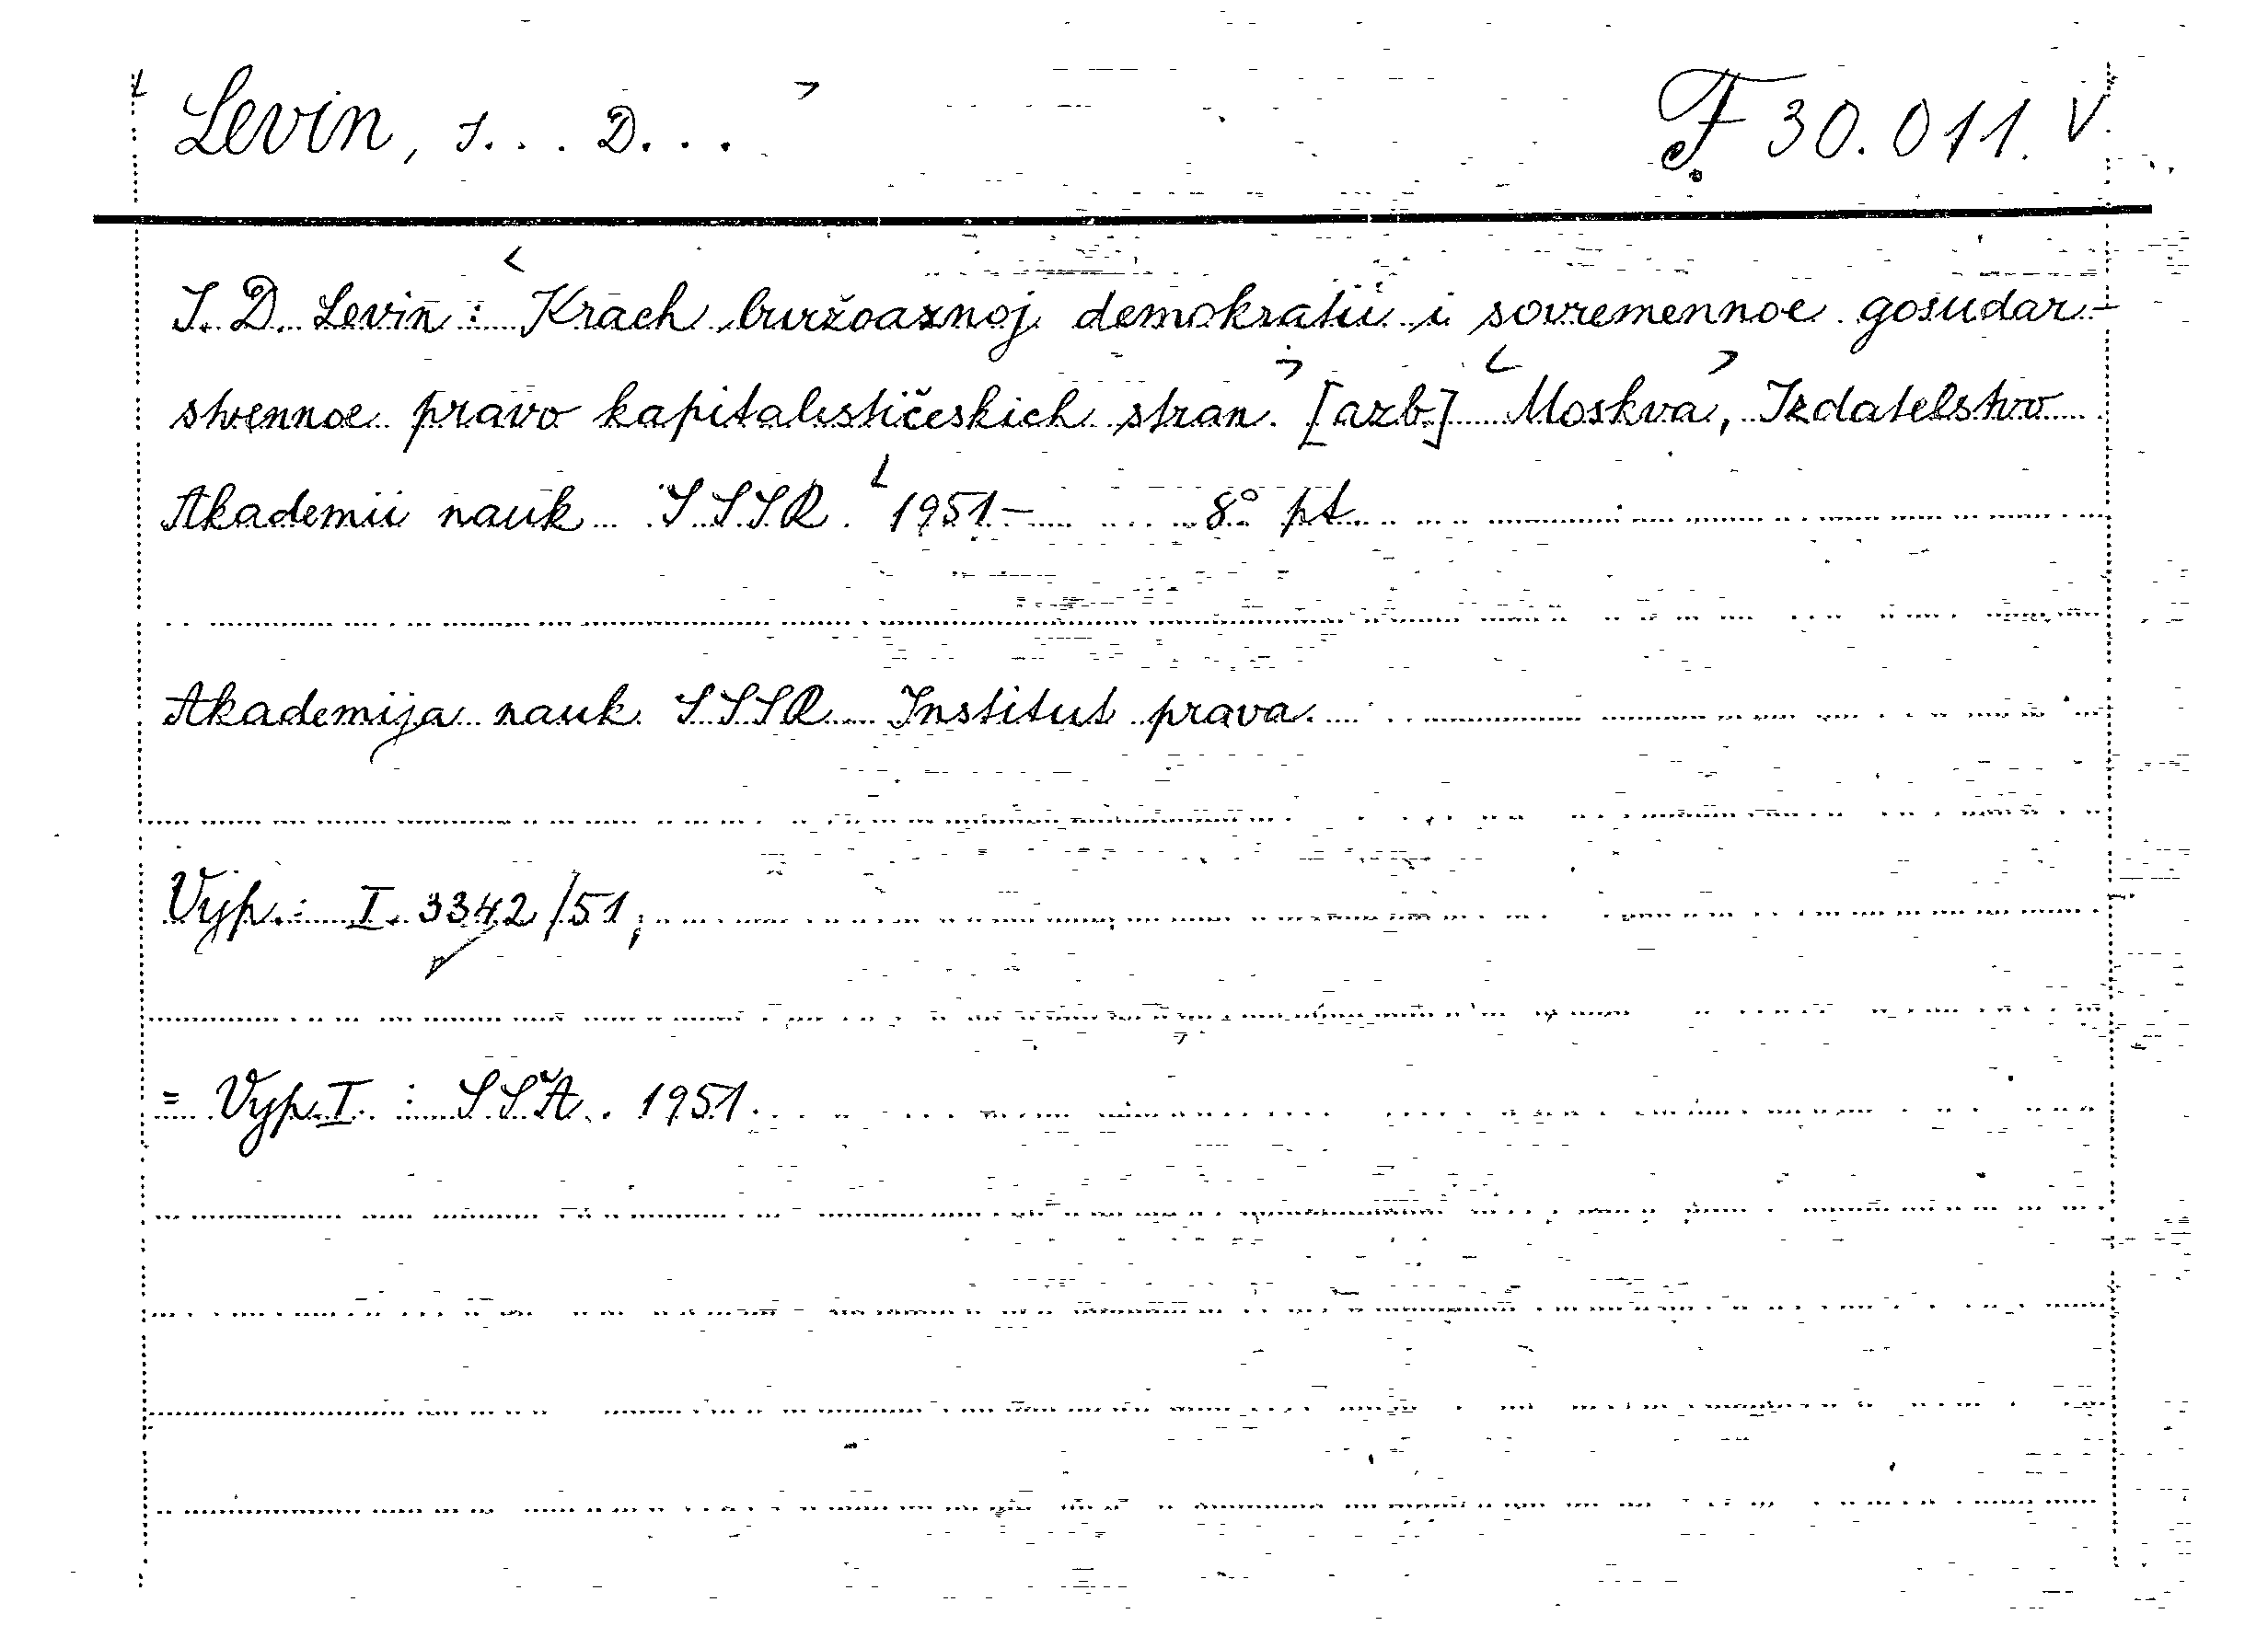 Levin, I... D... F 30.011. V
I. D. Levin: Krach buržoaznoj demokratii i sovremennoe gosudar-
stvennoe pravo kapitalističeskich stran. [azb.] Moskva, Izdatelstvo
Akademii nauk SSSR. 1951- 8° pt.
Akademija nauk SSSR Institut prava.
Vyp.: I. 3342/51,
= Vyp. I. : SŠA. 1951.